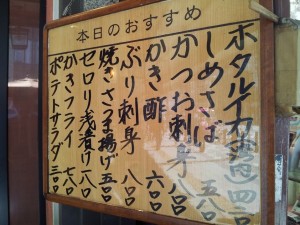 本日のおすすめ
ホタルイカ(沖
しめさば 五八〇
かつお刺身 八〇〇
かき酢 六〇〇
ぶり刺身 八〇〇
焼きさつま揚げ 五〇〇
セロリ浅漬け 二八〇
かきフライ 七八〇
ポテトサラダ 三〇〇